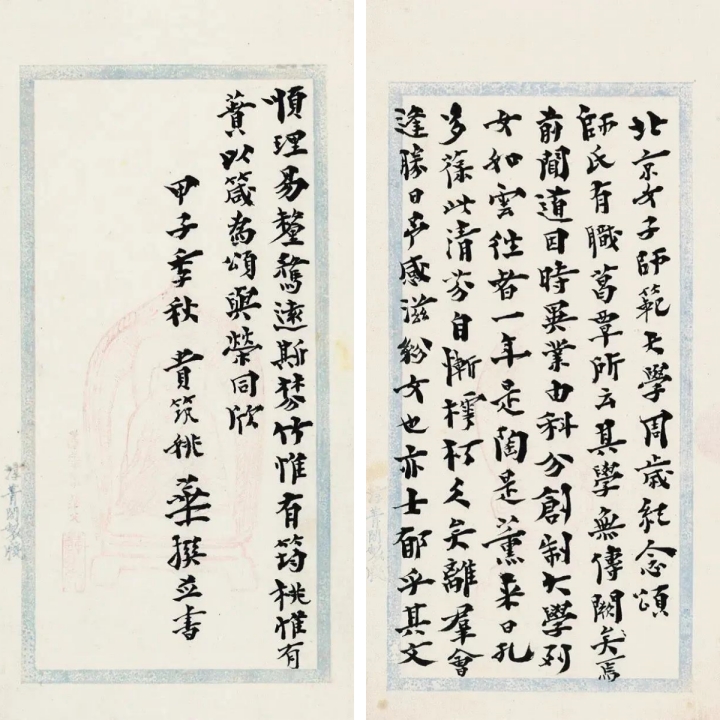 北京女子師範大學周歲紀念頌
師氏有職葛覃所云其學無傳闕矣焉
前聞道因時異業由科分創制大學列
女如雲往者一年是陶是薰來日孔
多葆此清芬自慚樗櫟久矣離羣會
逢勝日感滋紛女也亦士郁乎其文
順理易釐鶩遠斯棼竹惟有筠桃惟有
蕡以箴為頌與榮同欣
甲子季秋 貴筑姚華撰並書